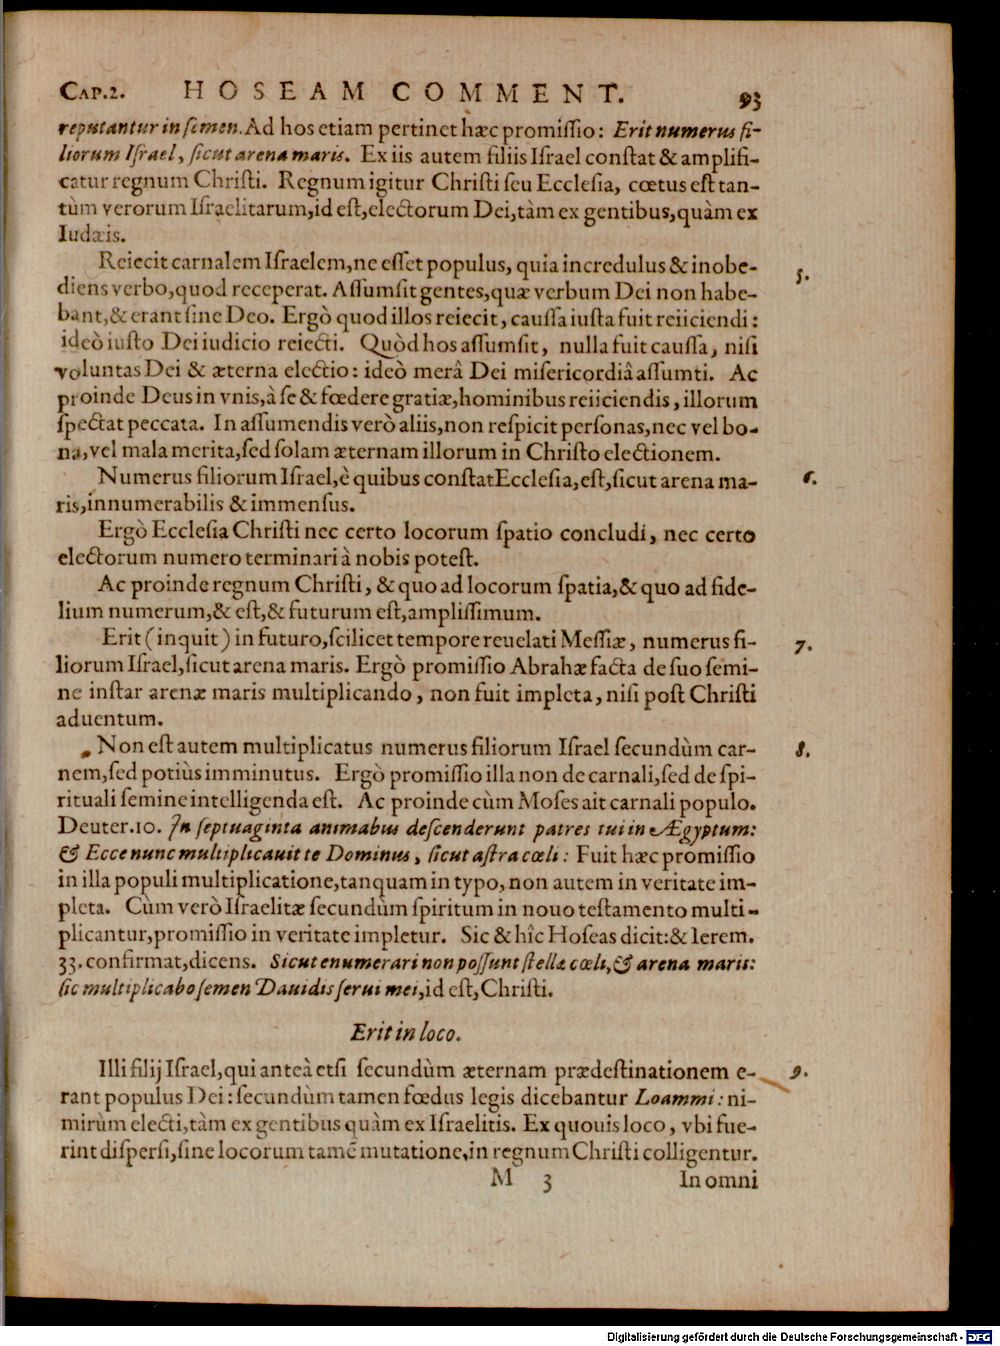 CAP.2. HOSEAM COMMENT. 93
reputantur in ſemen. Ad hos etiam pertinet hæc promiſſio: Erit numerus fi-
liorum Iſrael, ſicut arena maris. Ex iis autem filiis Iſrael conſtat & amplifi-
catur regnum Chriſti. Regnum igitur Chriſti ſeu Eccleſia, cœtus eſt tan-
tùm verorum Iſraelitarum, id eſt, electorum Dei, tàm ex gentibus, quàm ex
Iudæis.
Reiecit carnalem Iſraelem, ne eſſet populus, quia incredulus & inobe-
diens verbo, quod receperat. Aſſumſit gentes, quæ verbum Dei non habe-
bant, & erant ſine Deo. Ergò quod illos reiecit, cauſſa iuſta fuit reiiciendi:
ideò iuſto Dei iudicio reiecti. Quòd hos aſſumſit, nulla fuit cauſſa, niſi
voluntas Dei & æterna electio: ideò merâ Dei miſericordiâ aſſumti. Ac
proinde Deus in vnis, à ſe & fœdere gratiæ, hominibus reiiciendis, illorum
ſpectat peccata. In aſſumendis verò aliis, non reſpicit perſonas, nec vel bo-
na, vel mala merita, ſed ſolam æternam illorum in Chriſto electionem.
5.
Numerus filiorum Iſrael, è quibus conſtat Eccleſia, eſt, ſicut arena ma-
ris, innumerabilis & immenſus.
6.
Ergò Eccleſia Chriſti nec certo locorum ſpatio concludi, nec certo
electorum numero terminari à nobis poteſt.
Ac proinde regnum Chriſti, & quo ad locorum ſpatia, & quo ad fide-
lium numerum, & eſt, & futurum eſt, ampliſſimum.
Erit (inquit) in futuro, ſcilicet tempore reuelati Meſſiæ, numerus fi-
liorum Iſrael, ſicut arena maris. Ergò promiſſio Abrahæ facta de ſuo ſemi-
ne inſtar arenæ maris multiplicando, non fuit impleta, niſi poſt Chriſti
aduentum.
7.
Non eſt autem multiplicatus numerus filiorum Iſrael ſecundùm car-
nem, ſed potiùs imminutus. Ergò promiſſio illa non de carnali, ſed de ſpi-
rituali ſemine intelligenda eſt. Ac proinde cùm Moſes ait carnali populo.
Deuter. 10. In ſeptuaginta animabus deſcenderunt patres tui in Ægyptum:
& Ecce nunc multiplicauit te Dominus, ſicut aſtra cœli: Fuit hæc promiſſio
in illa populi multiplicatione, tanquam in typo, non autem in veritate im-
pleta. Cùm verò Iſraelitæ ſecundùm ſpiritum in nouo teſtamento multi-
plicantur, promiſſio in veritate impletur. Sic & hîc Hoſeas dicit: & Ierem.
33. confirmat, dicens. Sicut enumerari non poſſunt ſtellæ cœli, & arena maris:
ſic multiplicabo ſemen Dauidis ſerui mei, id eſt, Chriſti.
8.
Erit in loco.
Illi filij Iſrael, qui anteà etſi ſecundùm æternam prædeſtinationem e-
rant populus Dei: ſecundùm tamen fœdus legis dicebantur Loammi: ni-
mirùm electi, tàm ex gentibus quàm ex Iſraelitis. Ex quouis loco, vbi fue-
rint diſperſi, ſine locorum tamē mutatione, in regnum Chriſti colligentur.
9.
M 3 In omni
Digitalisierung gefördert durch die Deutsche Forschungsgemeinschaft - DFG